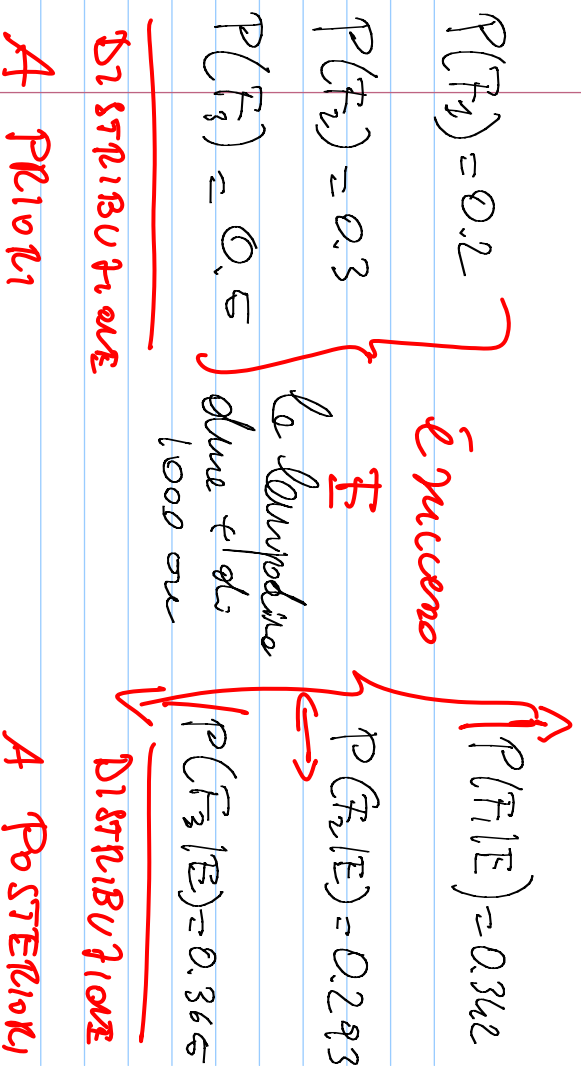 P(F1) = 0.2
P(F2) = 0.3
P(F3) = 0.5
DISTRIBUZIONE
A PRIORI
È successo
E
la lampadina
dura + di
1000 ore
P(F1|E) = 0.342
P(F2|E) = 0.293
P(F3|E) = 0.365
DISTRIBUZIONE
A POSTERIORI